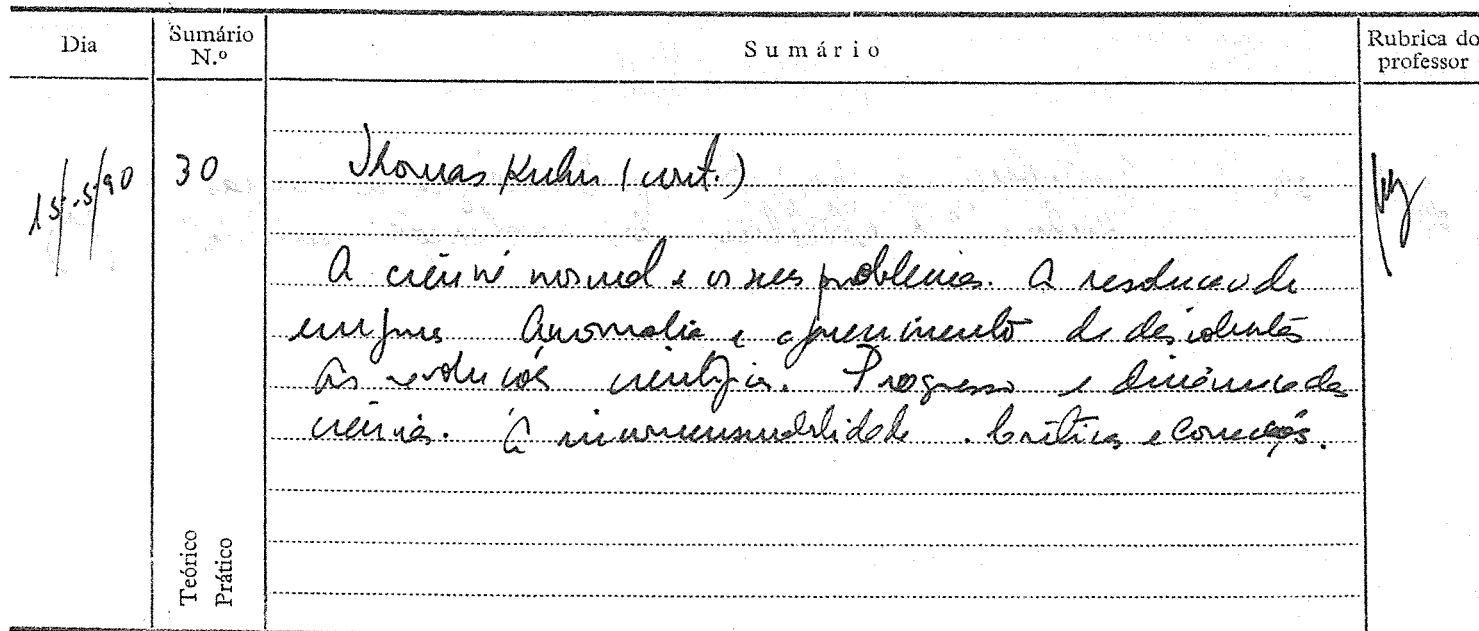 Dia
Sumário N.º
Sumário
Rubrica do professor
15-5/90
30
Thomas Kuhn (cont.)
A ciência normal e os seus problemas. A resolução de
enigmas Anomalia e de
As revoluções científicas. Progresso e dinâmica da
ciência. A incomensurabilidade. Críticas e correcções.
Teórico
Prático